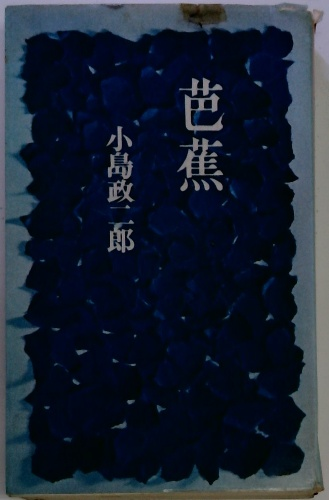 芭蕉
小島政二郎